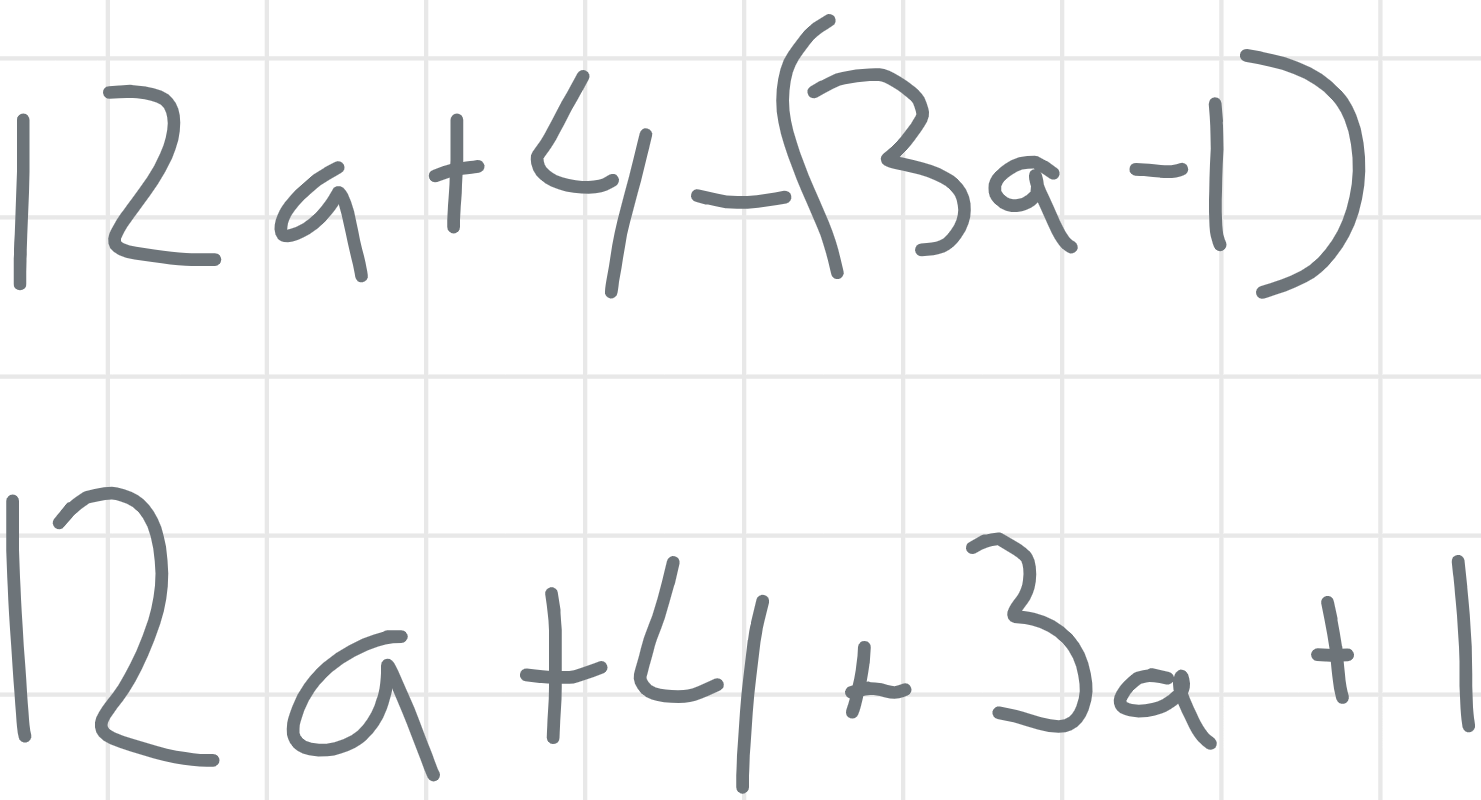 12a+4-(3a-1)
12a+4+3a+1